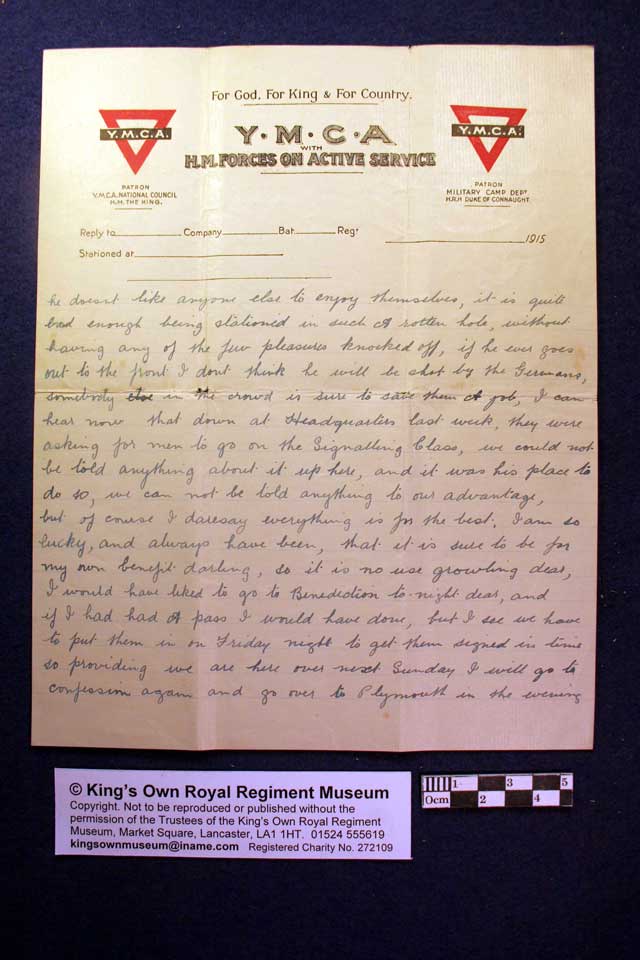 For God, For King & For Country.
Y.M.C.A.
Y·M·C·A
WITH
H.M. FORCES ON ACTIVE SERVICE
Y.M.C.A.
PATRON
Y.M.C.A. NATIONAL COUNCIL
H.M. THE KING.
PATRON
MILITARY CAMP DEPT
H.R.H DUKE OF CONNAUGHT.
Reply to Company Bat. Regt 1915
Stationed at
he doesnt like anyone else to enjoy themselves, it is quite
bad enough being stationed in such A rotten hole, without
having any of the few pleasures knocked off, if he ever goes
out to the front I dont think he will be shot by the Germans,
somebody else in the crowd is sure to save them A job, I can
hear now that down at Headquarters last week, they were
asking for men to go on the Signalling Class, we could not
be told anything about it up here, and it was his place to
do so, we can not be told anything to our advantage,
but of course I daresay everything is for the best. I am so
lucky, and always have been, that it is sure to be for
my own benefit darling, so it is no use growling dear,
I would have liked to go to Benediction to-night dear, and
if I had had A pass I would have done, but I see we have
to put them in on Friday night to get them signed in time
so providing we are here over next Sunday I will go to
confession again and go over to Plymouth in the evening
© King's Own Royal Regiment Museum
Copyright. Not to be reproduced or published without the
permission of the Trustees of the King's Own Royal Regiment
Museum, Market Square, Lancaster, LA1 1HT. 01524 555619
kingsownmuseum@iname.com Registered Charity No. 272109
1 3 5
0cm 2 4